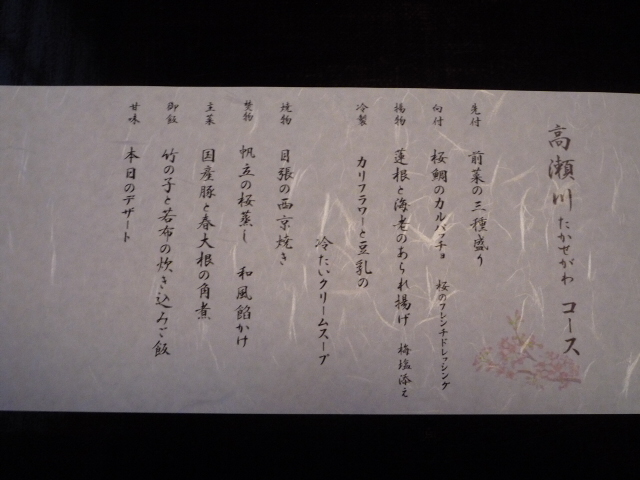 高瀬川 たかせがわ コース
先付 前菜の三種盛り
向付 桜鯛のカルパッチョ 桜のフレンチドレッシング
揚物 蓮根と海老のあられ揚げ 梅塩添え
冷製 カリフラワーと豆乳の
冷たいクリームスープ
焼物 目張の西京焼き
焚物 帆立の桜蒸し 和風餡かけ
主菜 国産豚と春大根の角煮
御飯 竹の子と若布の炊き込みご飯
甘味 本日のデザート